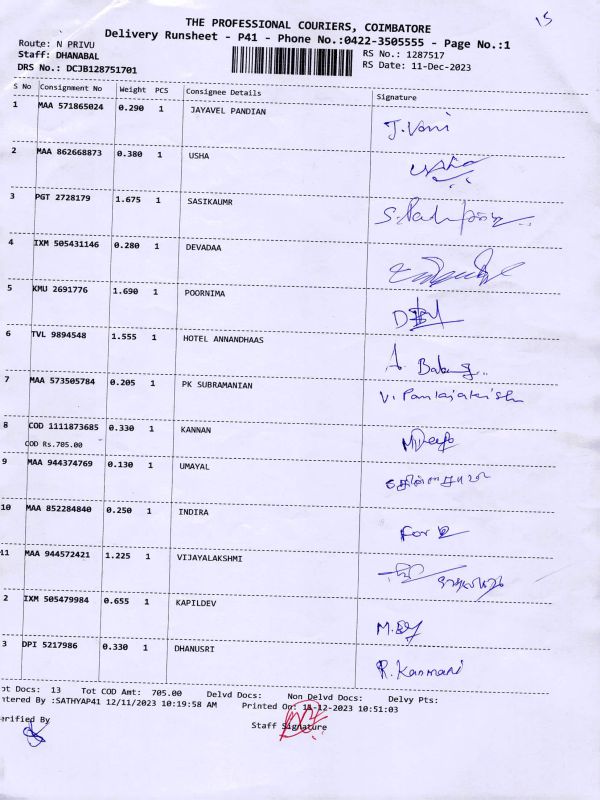 15
THE PROFESSIONAL COURIERS, COIMBATORE
Delivery Runsheet - P41 - Phone No.:0422-3505555 - Page No.:1
Route: N PRIVU
RS No.: 1287517
Staff: DHANABAL
RS Date: 11-Dec-2023
DRS No.: DCJB128751701
S No Consignment No Weight PCS Consignee Details Signature
1 MAA 571865024 0.290 1 JAYAVEL PANDIAN J. Vani
2 MAA 862668873 0.380 1 USHA Usha
3 PGT 2728179 1.675 1 SASIKAUMR
4 IXM 505431146 0.280 1 DEVADAA
5 KMU 2691776 1.690 1 POORNIMA
6 TVL 9894548 1.555 1 HOTEL ANNANDHAAS
7 MAA 573505784 0.205 1 PK SUBRAMANIAN
8 COD 1111873685 0.330 1 KANNAN
COD Rs.705.00
9 MAA 944374769 0.130 1 UMAYAL
10 MAA 852284840 0.250 1 INDIRA For
11 MAA 944572421 1.225 1 VIJAYALAKSHMI
2 IXM 505479984 0.655 1 KAPILDEV
3 DPI 5217986 0.330 1 DHANUSRI R. Kanmani
ot Docs: 13 Tot COD Amt: 705.00 Delvd Docs: Non Delvd Docs: Delvy Pts:
ntered By :SATHYAP41 12/11/2023 10:19:58 AM Printed On: 11-12-2023 10:51:03
erified By
Staff Signature